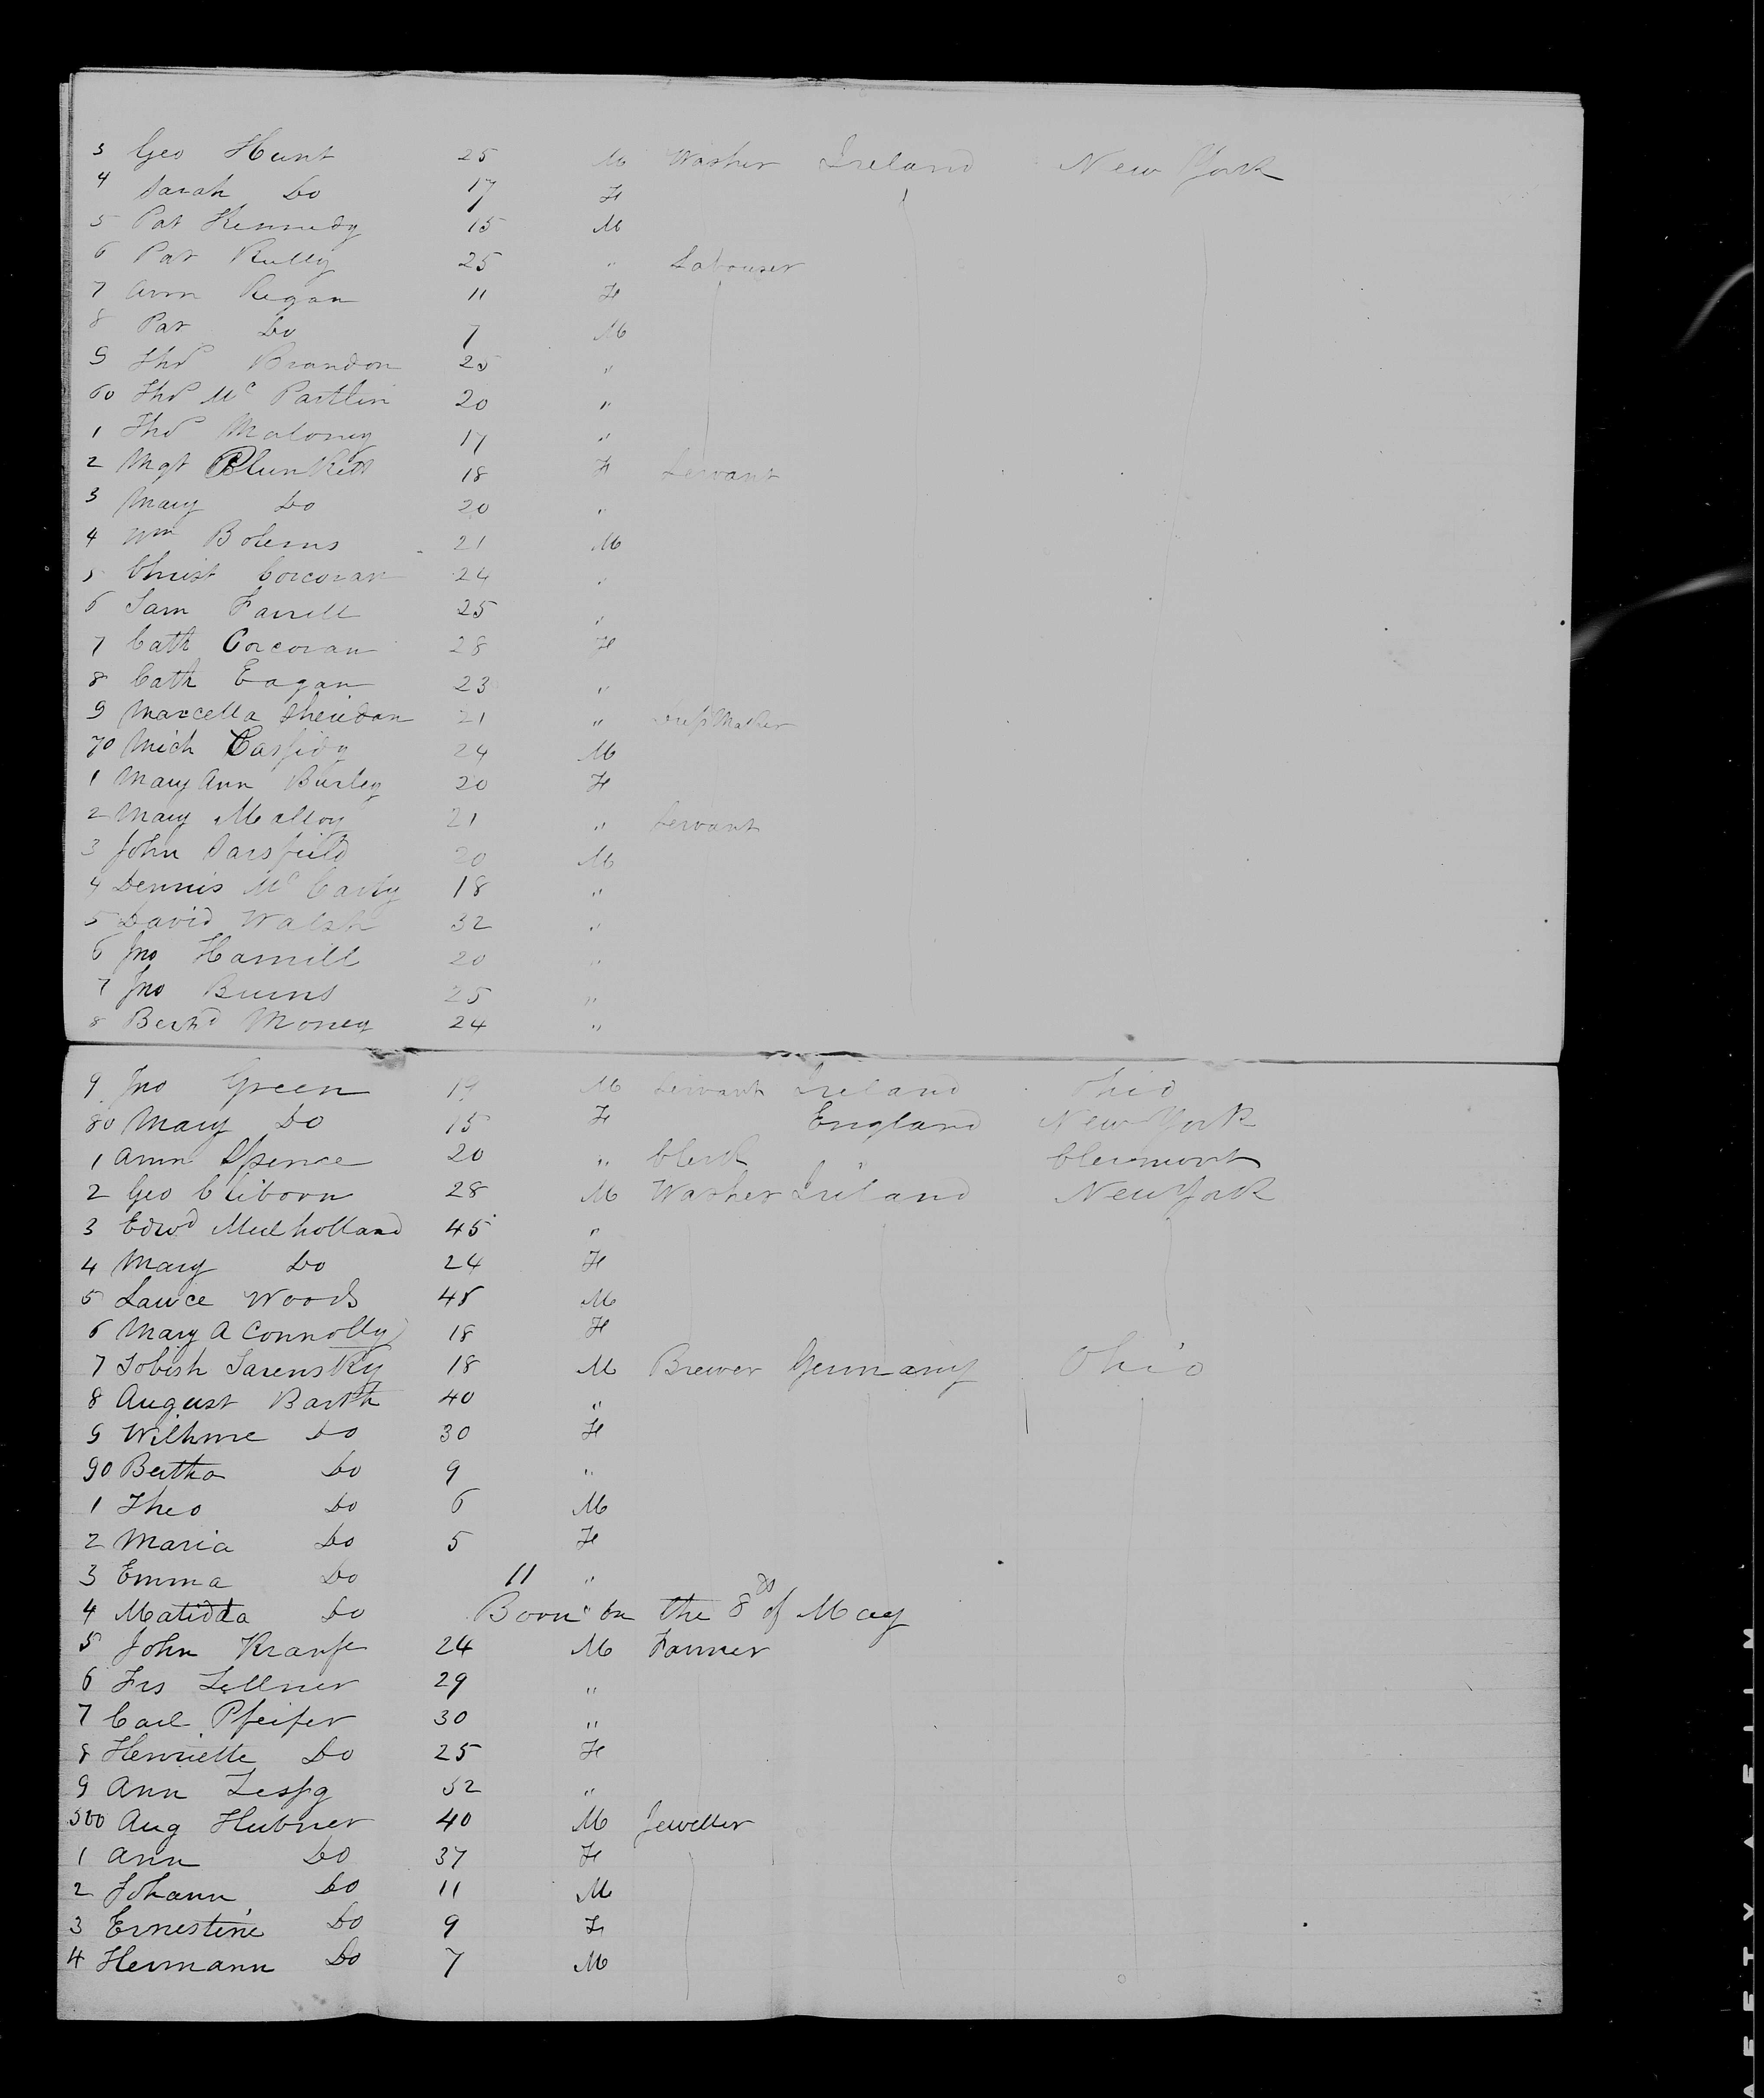 3 Geo Hunt 25 M Washer Ireland New York
4 Sarah Do 17 F
5 Pat Kennedy 15 M
6 Pat Kelly 25 " Labourer
7 Ann Regan 11 F
8 Pat Do 7 M
9 Thos Brandon 25 "
60 Thos Mc Partlin 20 "
1 Thos Maloney 17 "
2 Mgt Plunkett 18 F Servant
3 Mary Do 20 "
4 Wm Bolems 21 M
5 Christ Corcoran 24 "
6 Sam Farrell 25 "
7 Cath Corcoran 28 F
8 Cath Eagan 23 "
9 Marcella Sheridan 21 " Dress Maker
70 Mich Cassidy 24 M
1 Mary Ann Burley 20 F
2 Mary Malloy 21 " Servant
3 John Sarsfield 20 M
4 Dennis Mc Carty 18 "
5 David Walsh 32 "
6 Jno Hamill 20 "
7 Jno Burns 25 "
8 Bernd Money 24 "
9 Jno Green 19 M Servant Ireland Ohio
80 Mary Do 15 F England New York
1 Ann Spence 20 " Clerk " Clermont
2 Geo Cliborn 28 M Washer Ireland New York
3 Edwd Mulholland 45 "
4 Mary Do 24 F
5 Lawce Woods 48 M
6 Mary A Connolly 18 F
7 Tobish Sarensky 18 M Brewer Germany Ohio
8 August Barth 40 "
9 Wilhme Do 30 F
90 Bertha Do 9 "
1 Theo Do 6 M
2 Maria Do 5 F
3 Emma Do 11 "
4 Matidda Do Born " on the 8 of May
5 John Kranse 24 M Farmer
6 Frs Lellner 29 "
7 Carl Pfeifer 30 "
8 Henriette Do 25 F
9 Ann 32 "
500 Aug Hubner 40 M Jeweller
1 Ann Do 37 F
2 Johann Do 11 M
3 Ernestine Do 9 F
4 Hermann Do 7 M